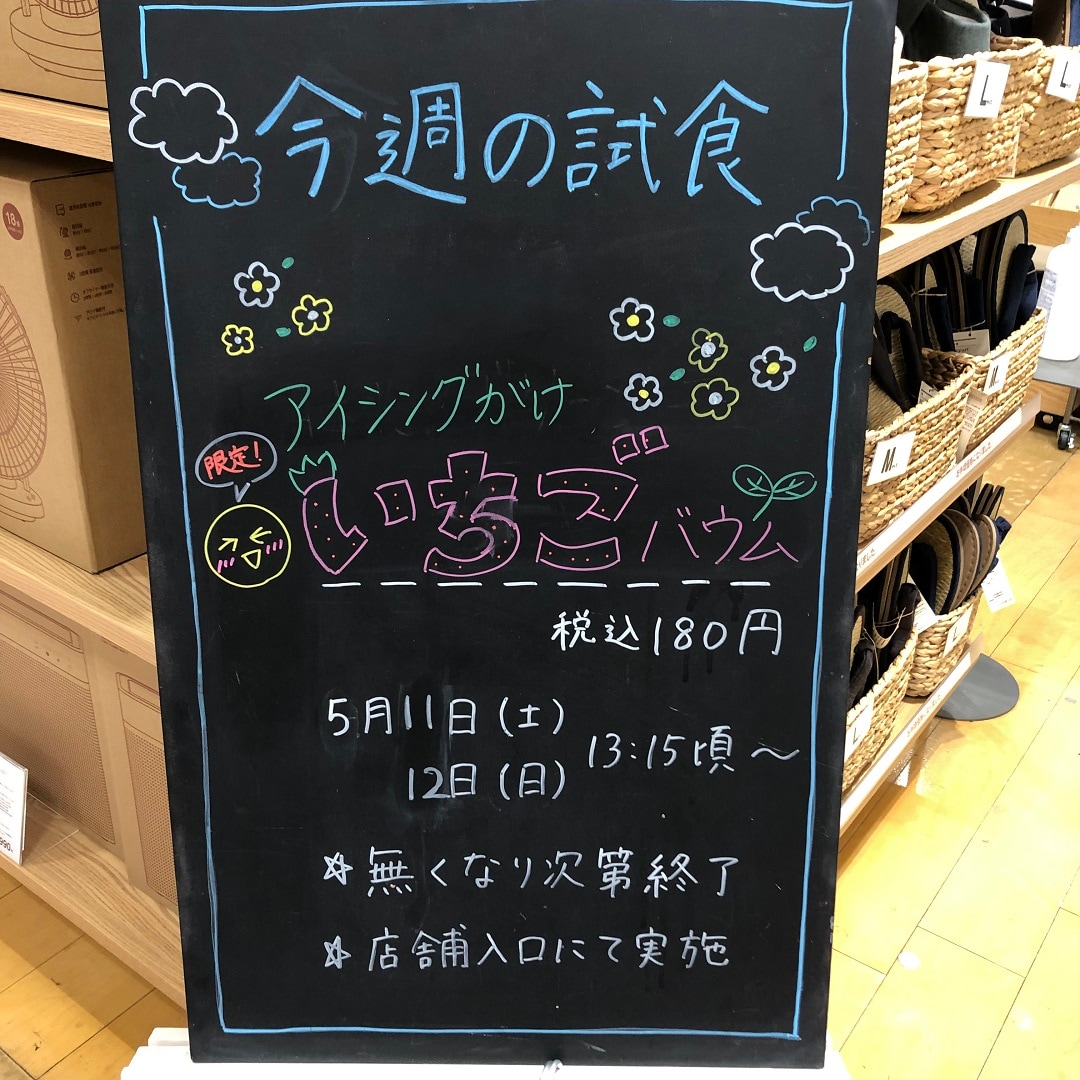 今週の試食
アイシングがけ
限定!
いちごバウム
税込180円
5月11日(土)
12日(日)
13:15頃~
☆無くなり次第終了
☆店舗入口にて実施
L
L
M
L
18
990